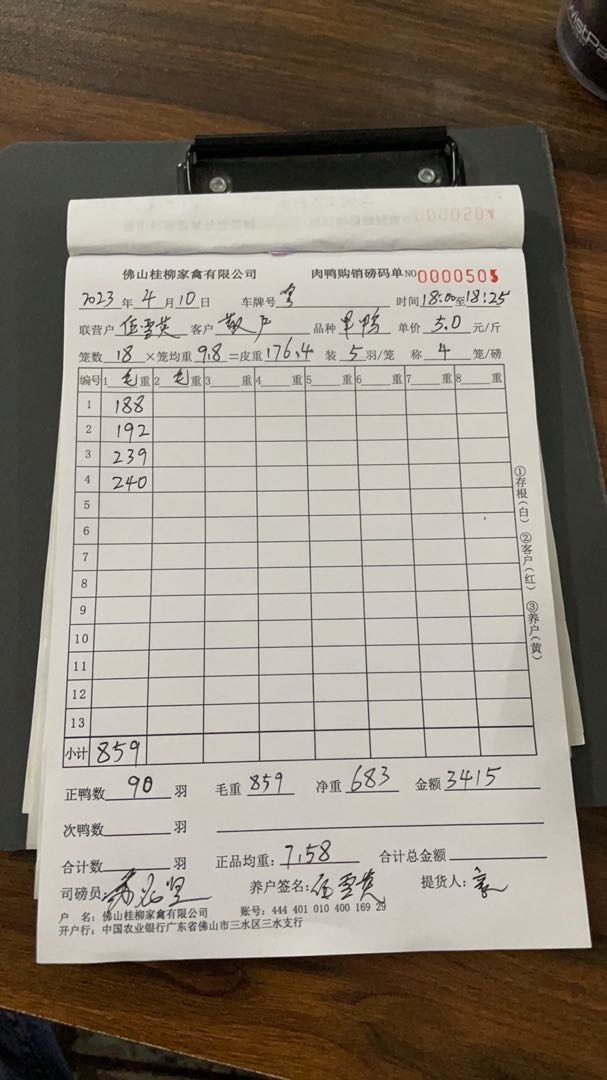 佛山桂柳家禽有限公司 肉鸭购销磅码单 NO 0000505
2023 年 4 月 10 日 车牌号 时间 18:00 至 18:25
联营户 伍雪英 客户 散户 品种 单鸭 单价 5.0 元/斤
笼数 18 ×笼均重 9.8 =皮重 176.4 装 5 羽/笼 称 4 笼/磅
编号 1 毛 重 2 毛 重 3 重 4 重 5 重 6 重 7 重 8 重
1 188
2 192
3 239
4 240
5
6
7
8
9
10
11
12
13
小计 859
①存根(白) ②客户(红) ③养户(黄)
正鸭数 90 羽 毛重 859 净重 683 金额 3415
次鸭数 羽
合计数 羽 正品均重: 7.58 合计总金额
司磅员: 养户签名: 伍雪英 提货人:
户 名: 佛山桂柳家禽有限公司 账号: 444 401 010 400 169 29
开户行: 中国农业银行广东省佛山市三水区三水支行